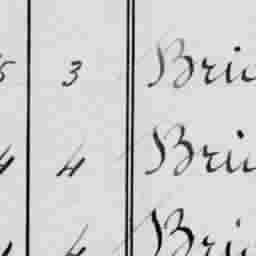 5 3 Bric
4 4 Bric
4 Bric